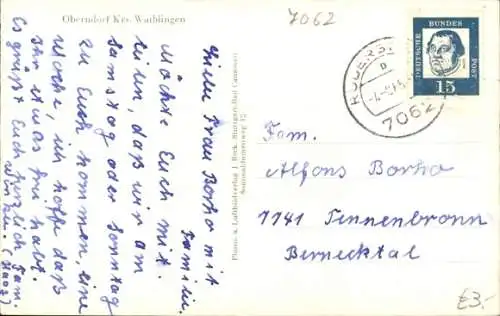 Oberndorf Krs. Waiblingen
7062
Liebe Frau Borho mit
Familie.
Möchte Euch mit-
teilen, daß wir am
Samstag oder Sonntag
zu Euch kommen, eine
Woche, ich hoffe daß
Ihr etwas frei habt.
Es grüßt Euch herzlich Fam.
(Haag)
Photo- u. Luftbildverlag J. Beck, Stuttgart-Bad Cannstatt
DEUTSCHE BUNDES POST
15
7062
Fam.
Alfons Borho
7741 Tennenbronn
Bernecktal
€3.-